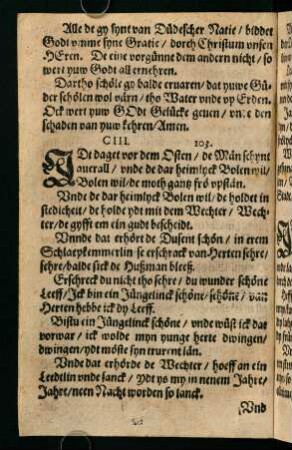 Alle de gy synt van Düdescher Natie / biddet
Godt vmme syne Gratie / dorch Christum vnsen
HEren. De eine vorgünnet dem andern nicht / so
wert yuw Godt all ernehren.
Dartho schöle gy balde ervaren / dat yuwe Gü-
der schölen wol varn / tho Water vnde vp Erden.
Ock wert yuw GOdt Gelücke geuen / vnde den
schaden van yuw kehren / Amen.
CIII. 103.
IDt daget vor dem Osten / de Män schynt
auerall / vnde de dar heimlyck Bolen wil /
Bolen wil / de moth gantz frö vpstan.
Vnde de dar heimlyck Bolen wil / de holdet in
stedicheit / de holde ydt mit dem Wechter / Wech-
ter / de gyfft em ein gudt bescheidt.
Vnnde dat erhört de Dusent schön / in erem
Schlaepkemmerlin se erschrack van Herten sehre /
sehre / balde sick de Hußman bleeß.
Erschreck du nicht tho sehre / du wunder schöne
Leeff / Ick bin ein Jüngelinck schöne / schöne / van
Herten hebbe ick dy Leeff.
Bistu ein Jüngelinck schöne / vnde wüst ick dat
vorwar / ick wolde myn yunge herte dwingen /
dwingen / ydt möste syn trurent län.
Vnde dat erhörde de Wechter / hoeff an ein
Leedtlin vnde sanck / ydt ys my in nenem Jahre /
Jahre / neen Nacht worden so lanck.
(Vnd